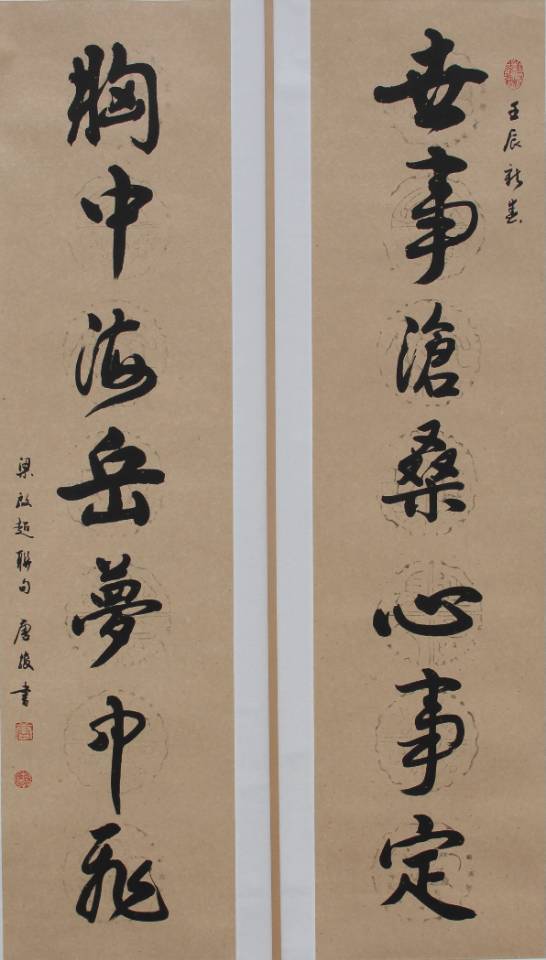 壬辰新春
世事滄桑心事定
胸中海岳夢中飛
梁啟超聯句 唐俊書